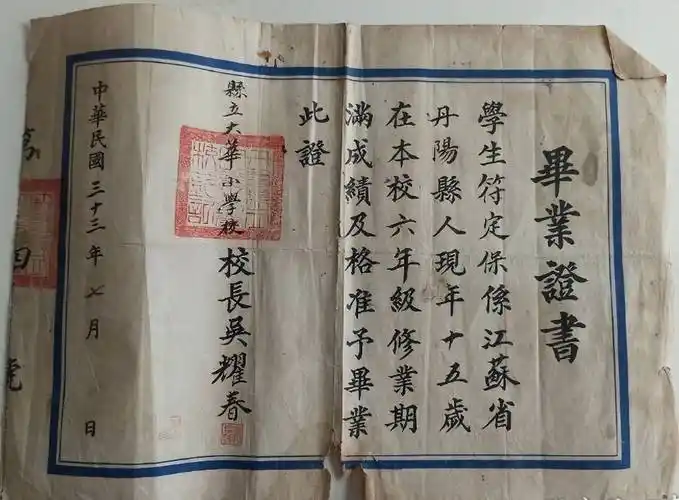 畢業證書
學生符定保係江蘇省
丹陽縣人現年十五歲
在本校六年級修業期
滿成績及格准予畢業
此證
縣立大華小學校
校長吳耀春
中華民國三十三年七月 日
號